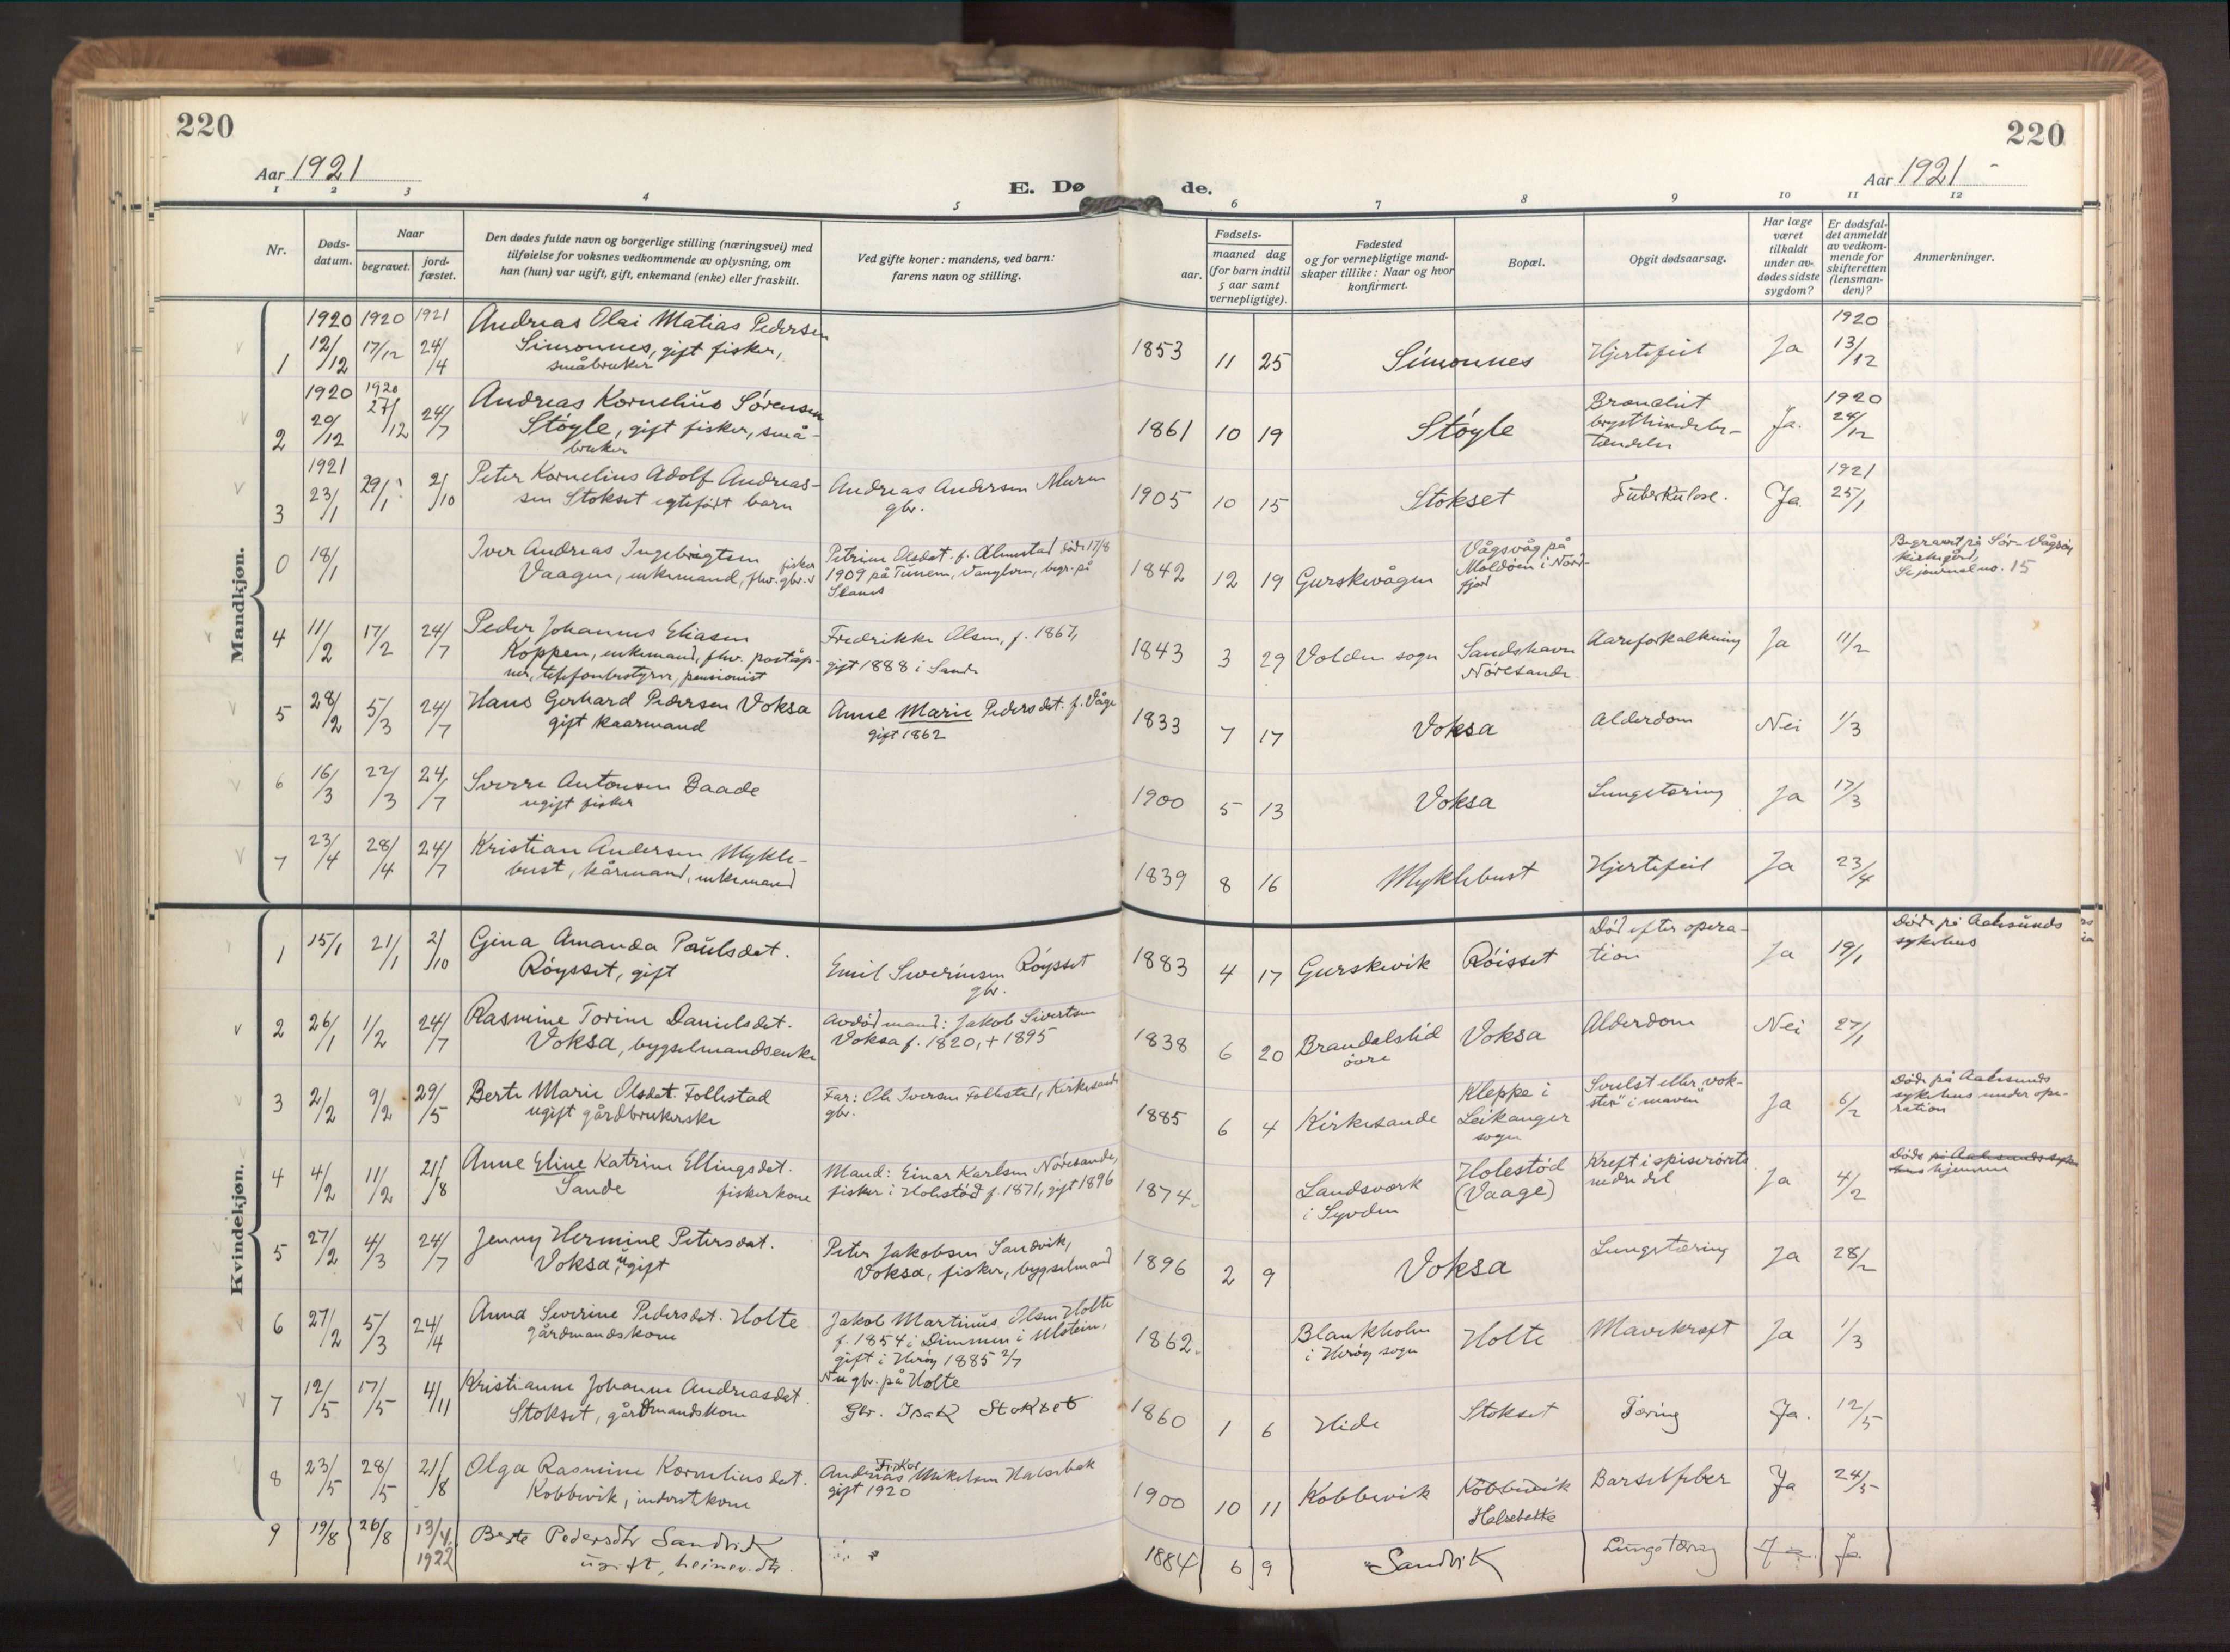 220
220
Aar 1921
Aar 1921
E. Dø de.
1 2 3 4 5 6 7 8 9 10 11 12
Nr.
Døds-
datum.
Naar
begravet.
jord-
fæstet.
Den dødes fulde navn og borgerlige stilling (næringsvei) med
tilføielse for voksnes vedkommende av oplysning, om
han (hun) var ugift, gift, enkemand (enke) eller fraskilt.
Ved gifte koner: mandens, ved barn:
farens navn og stilling.
Fødsels-
aar.
maaned dag
(for barn indtil
5 aar samt
vernepligtige).
Fødested
og for vernepligtige mand-
skaper tillike: Naar og hvor
konfirmert.
Bopæl.
Opgit dødsaarsag.
Har læge
været
tilkaldt
under av-
dødes sidste
sygdom?
Er dødsfal-
det anmeldt
av vedkom-
mende for
skifteretten
(lensman-
den)?
Anmerkninger.
Mandkjøn.
1 1920 12/12 1920 17/12 1921 24/4 Andreas Olai Matias Pedersen
Simonnes, gift fisker,
småbruker
1853 11 25 Simonnes Hjertefeil Ja 1920 13/12
2 1920 20/12 1920 27/12 24/7 Andreas Kornelius Sørensen
Støyle, gift fisker, små-
bruker
1861 10 19 Støyle Bronchit
brysthindebe-
tændelse
Ja. 1920 24/12
3 1921 23/1 29/1 2/10 Peter Kornelius Adolf Andreas-
sen Stokset egtefødt barn
Andreas Andersen Muren
gbr.
1905 10 15 Stokset Tuberkulose. Ja. 1921 25/1
0 18/1 Iver Andreas Ingebrigtsen fisker
Vaagen, enkemand, fhv. gbr. &
Petrine Olsdat. f. Almestad død 17/8
1909 på Tunem, Vanylven, begr. på
Slaués
1842 12 19 Gurskevågen Vågsvåg på
Moldøen i Nord-
fjord
Begravet på Sør-Vågsøy
kirkegård,
Se journal no. 15
4 11/2 17/2 24/7 Peder Johannes Eliasen
Koppen, enkemand, fhv. poståp-
ner, telefonbestyrer, pensionist
Fredrikke Olsen, f. 1867,
gift 1888 i Sande
1843 3 29 Volden sogn Sandshavn
Nøresande
Aareforkalkning Ja 11/2
5 28/2 5/3 24/7 Hans Gerhard Pedersen Voksa
gift kaarmand
Anne Marie Pedersdat. f. Våge
gift 1862
1833 7 17 Voksa Alderdom Nei 1/3
6 16/3 22/3 24/7 Sverre Antonsen Baade
ugift fisker
1900 5 13 Voksa Lungetæring Ja 17/3
7 23/4 28/4 24/7 Kristian Andersen Mykle-
bust, kårmand, enkemand
1839 8 16 Myklebust Hjertefeil Ja 23/4
Kvindekjøn.
1 15/1 21/1 2/10 Gina Amanda Paulsdat.
Røysset, gift
Emil Severinsen Røysset
gbr.
1883 4 17 Gurskevik Røisset Død efter opera-
tion
Ja 19/1 Døde på Aalesunds
sykehus
2 26/1 1/2 24/7 Rasmine Torine Danielsdat.
Voksa, bygselmandsenke
Avdød mand: Jakob Sivertsen
Voksa f. 1820, + 1895
1838 6 20 Brandalslid
øvre
Voksa Alderdom Nei 27/1
3 2/2 9/2 29/5 Berte Marie Olsdat. Follestad
ugift gårdbrukerske
Far: Ole Iversen Follestad, Kirkesande
gbr.
1885 6 4 Kirkesande Kleppe i
Leikanger
sogn
Svulst eller "vok-
ster" i maven
Ja 6/2 Døde på Aalesunds
sykehus under ope-
ration
4 4/2 11/2 21/8 Anne Eline Katrine Ellingsdat.
Sande fiskerkone
Mand: Einar Karlsen Nøresande,
fisker i Holestød f. 1871, gift 1896
1874. Landsværk
i Syvden
Holestød
(Vaage)
Kreft i spiserørets
nedre del
Ja 4/2 Døde på Aalesunds syke-
hus hjemme
5 27/2 4/3 24/7 Jenny Hermine Petersdat.
Voksa, ugift
Peter Jakobsen Sandvik,
Voksa, fisker, bygselmand
1896 2 9 Voksa Lungetæring Ja 28/2
6 27/2 5/3 24/4 Anna Severine Pedersdat. Holte
gårdmandskone
Jakob Martinus Olsen Holte
f. 1854 i Dimmen i Ulstein,
gift i Herøy 1885 2/7
Nu gbr. på Holte
1862. Blankholm
i Herøy sogn
Holte Mavekræft Ja 1/3
7 12/5 17/5 4/11 Kristianne Johanne Andreasdat.
Stokset, gårdmandskone
Gbr. Isak Stokset
1860 1 6 Hide Stokset Tæring Ja. 12/5
8 23/5 28/5 21/8 Olga Rasmine Korneliusdat.
Kobbevik, inderstkone
Fisker
Andreas Mikelsen Halsebak
gift 1920
1900 10 11 Kobbevik Kobbevik
Halsebakke
Barselfeber Ja 24/5
9 19/8 26/8 13/4 1922 Berte Pedersdtr Sandvik
ugift, heimev. dtr.
1884 6 9 Sandvik Lungetæring Ja. Ja